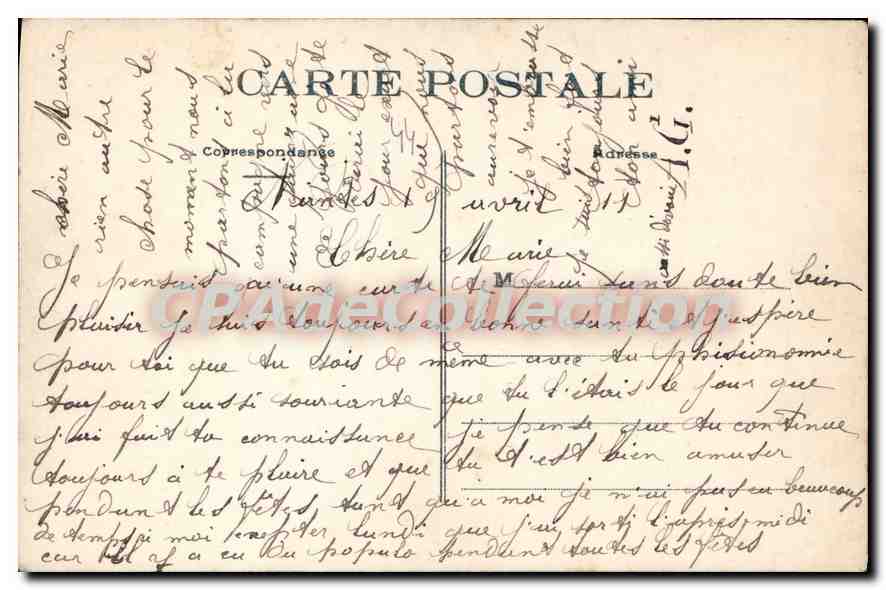 CARTE POSTALE
Correspondance
Adresse
Nantes 1 avril 11
Chère Marie
Je pensais qu'une carte te ferai sans doute bien
plaisir je suis toujours en bonne santé et j'espère
pour toi que tu sois de même avec ta phisionomie
toujours aussi souriante que tu l'étais le jour que
j'ai fait ta connaissance je pense que tu continue
toujours à te plaire et que tu t'est bien amuser
pendant les fêtes tant qu'a moi je n'ai pas eu beaucoup
de temps moi excepter lundi que j'ai sorti l'après-midi
car il y a eu du populo pendant toutes les fêtes
M
CPA de Collection
chère Marie
rien autre
chose pour le
moment nous
partons à la
campagne
une quinzaine
de jours
jour
que nous
partons
aurevoir
je t'embrasse
bien
je suis toujours
ton ami
J.G.